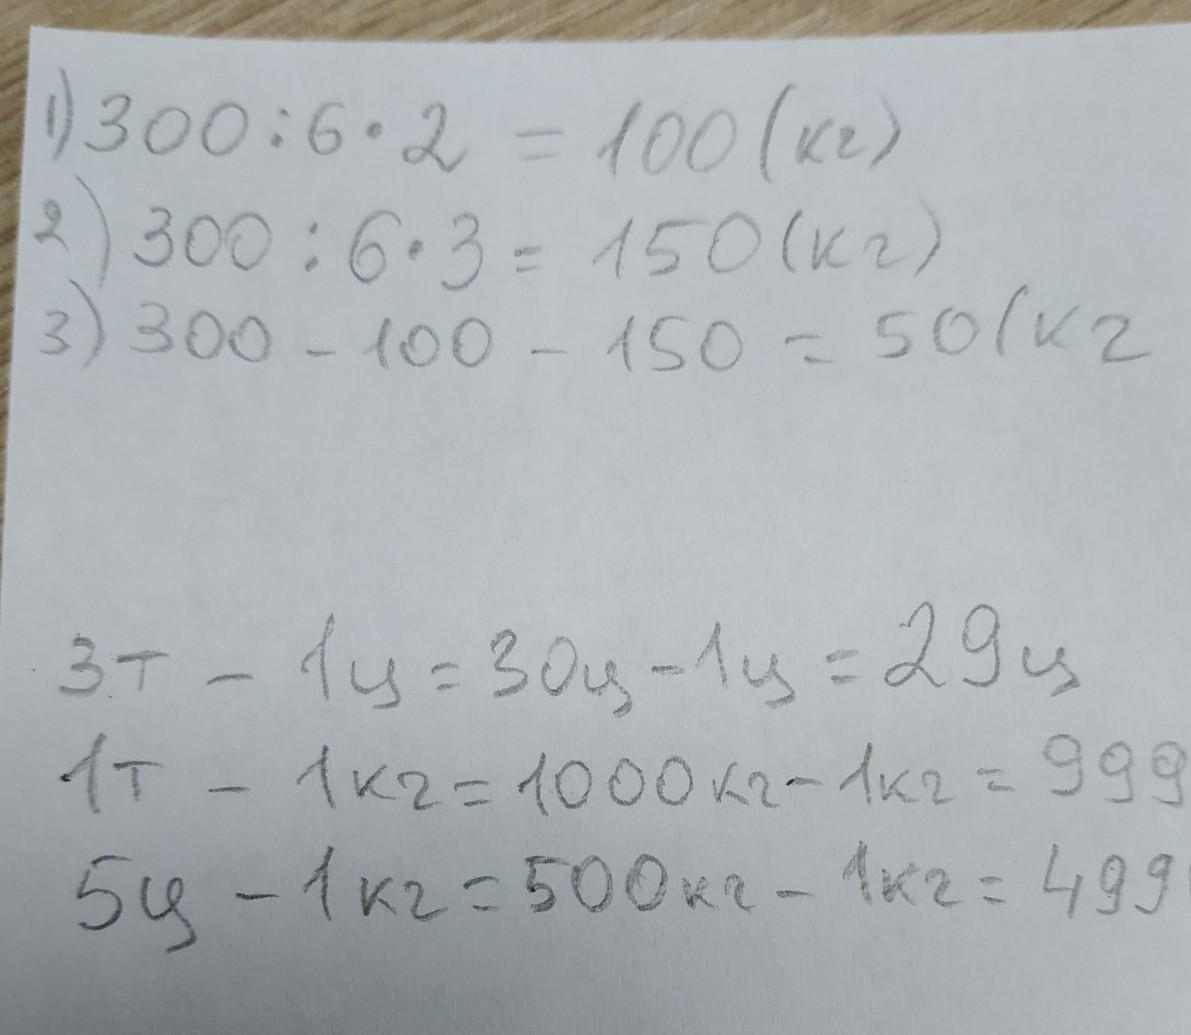 1) 300 : 6 · 2 = 100 (кг)
2) 300 : 6 · 3 = 150 (кг)
3) 300 - 100 - 150 = 50 (кг
3т - 1ц = 30ц - 1ц = 29ц
1т - 1кг = 1000кг - 1кг = 999
5ц - 1кг = 500кг - 1кг = 499